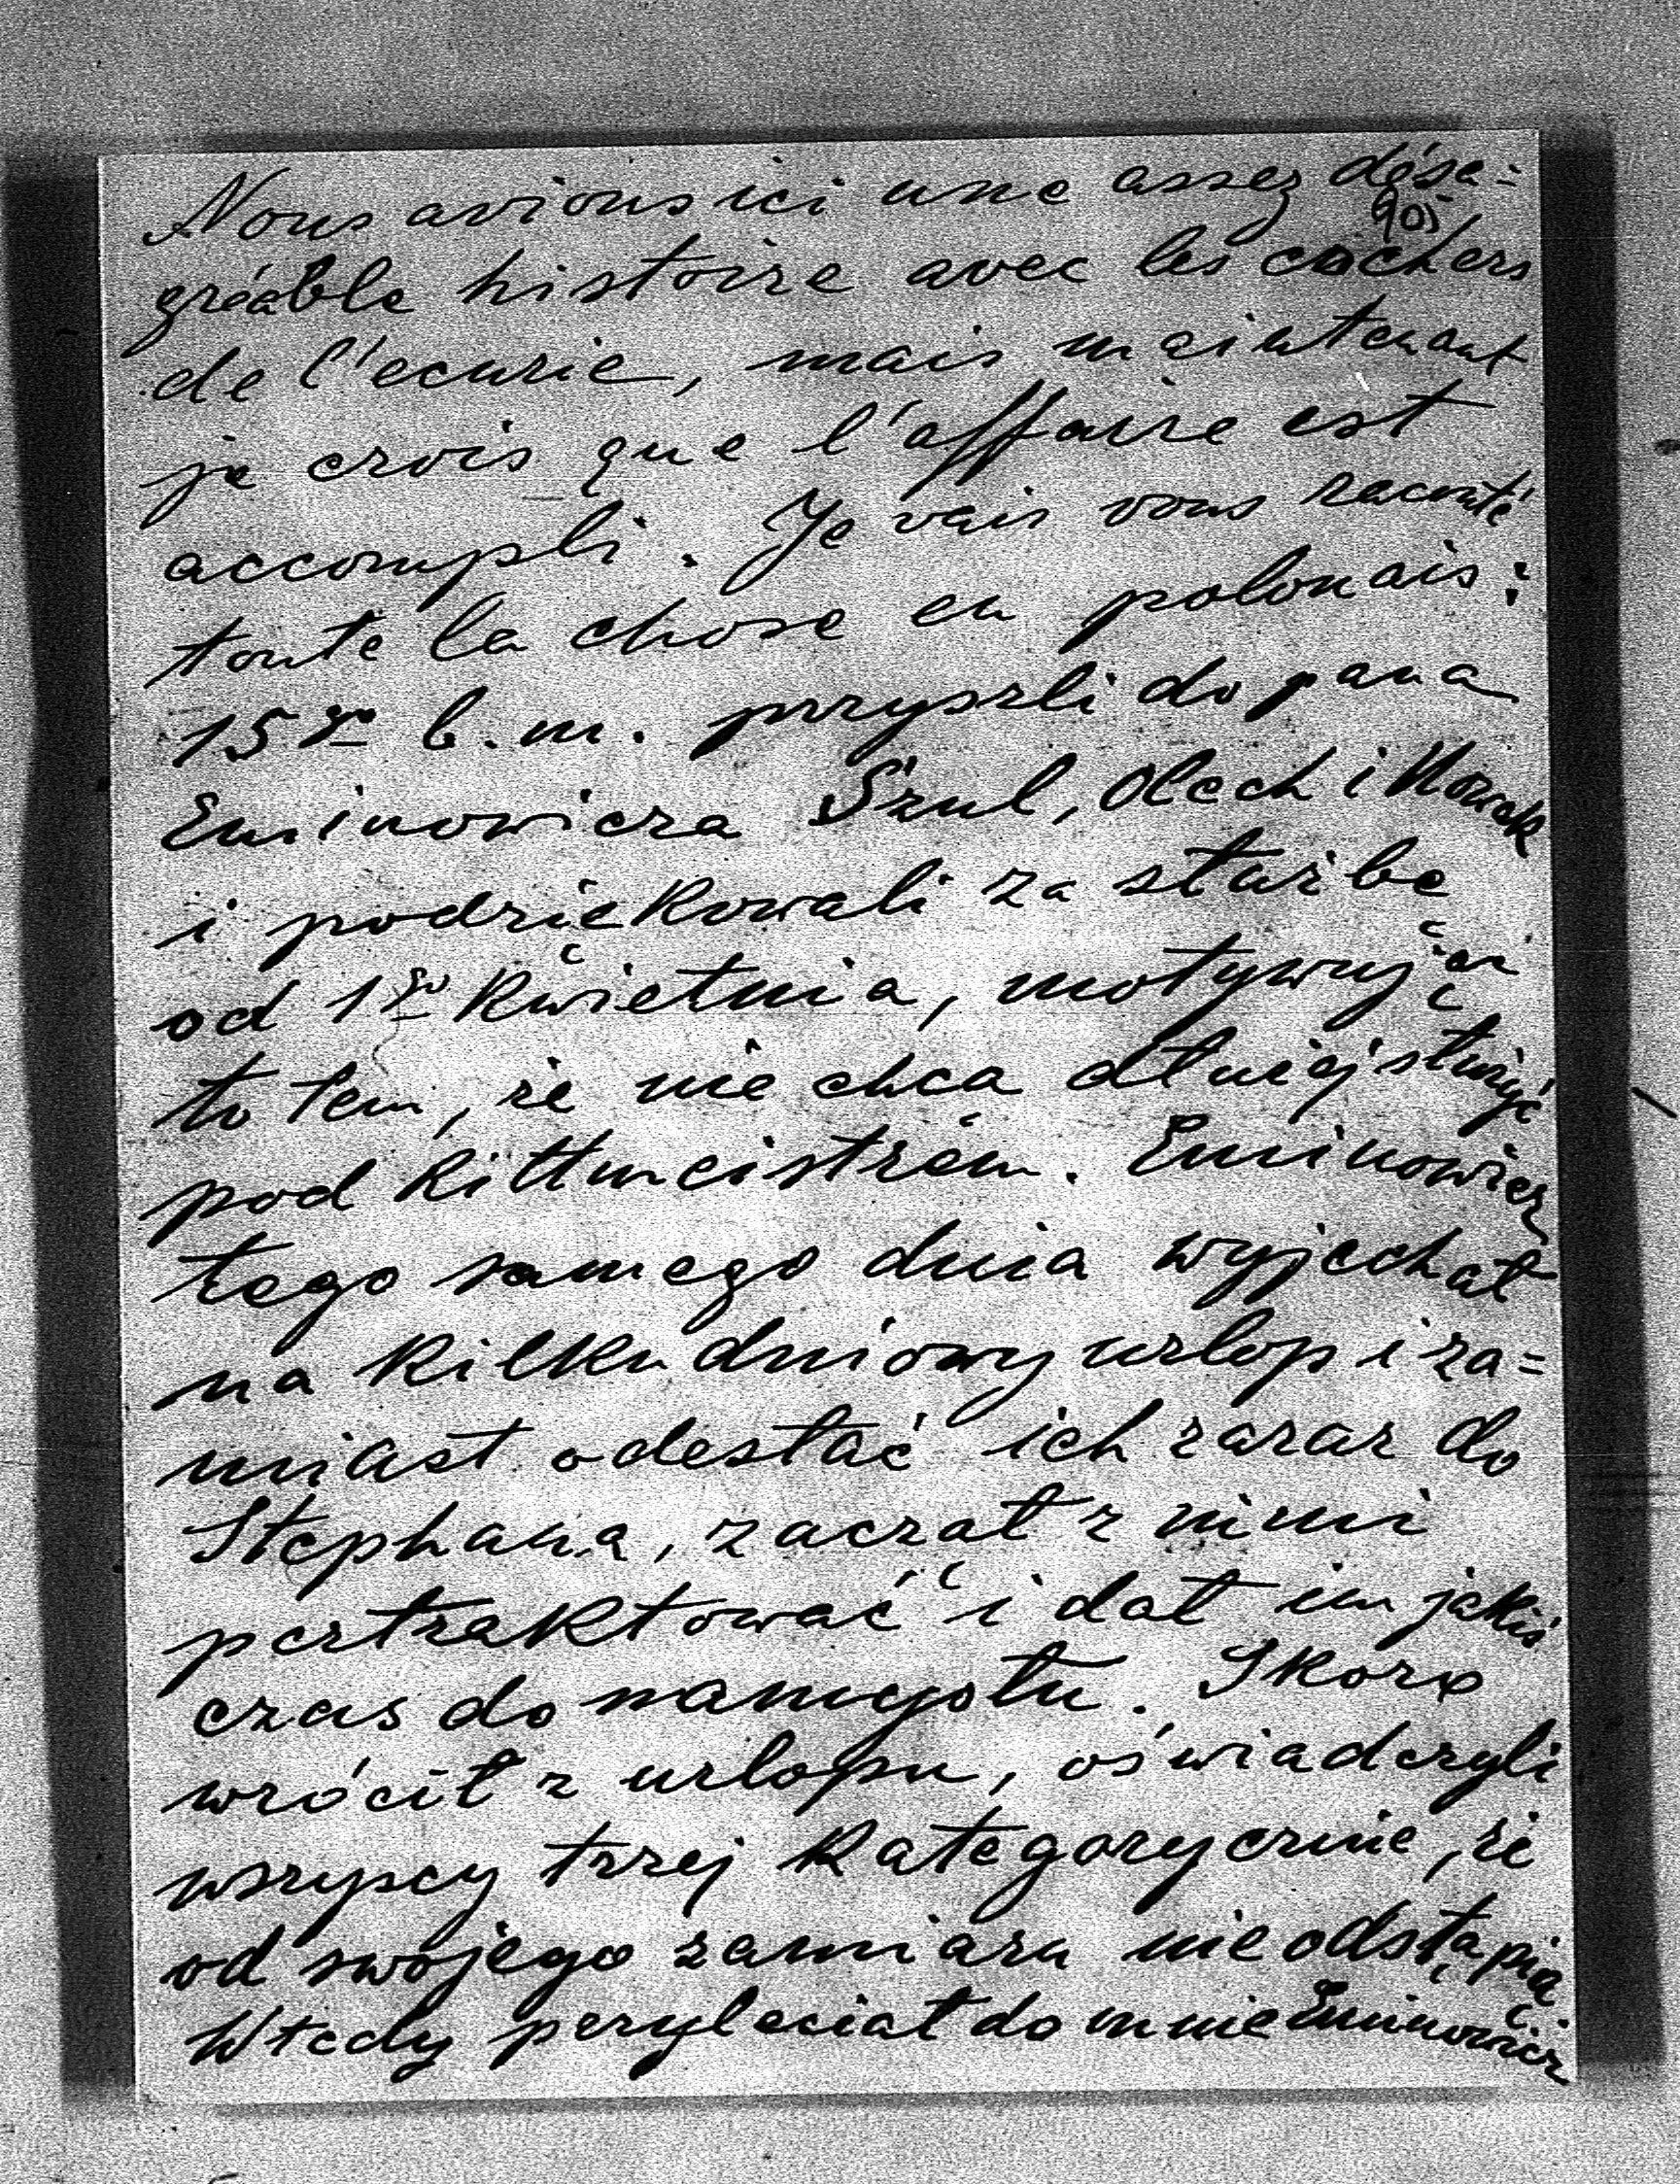 Nous avions ici une assez désa=
905
gréable histoire avec les cochers
de l'ecurie, mais maintenant
je crois que l'affaire est
accompli. Je vais vous raconté
toute la chose en polonais:
15go b.m. przyszli do pana
Eminowicza Szul, Olech i Nowak
i podziękowali za służbę
od 1go Kwietnia, motywując
to tem, że nie chcą dłużej służyć
pod Rittmeistrem. Eminowicz
tego samego dnia wyjechał
na kilku dniowy urlop i za=
miast odesłać ich zaraz do
Stephana, zaczął z nimi
pertraktować i dał im jakiś
czas do namysłu. Skoro
wrócił z urlopu, oświadczyli
wszyscy trzej kategorycznie, że
od swojego zamiaru nie odstąpią.
Wtedy przyleciał do mnie Eminowicz